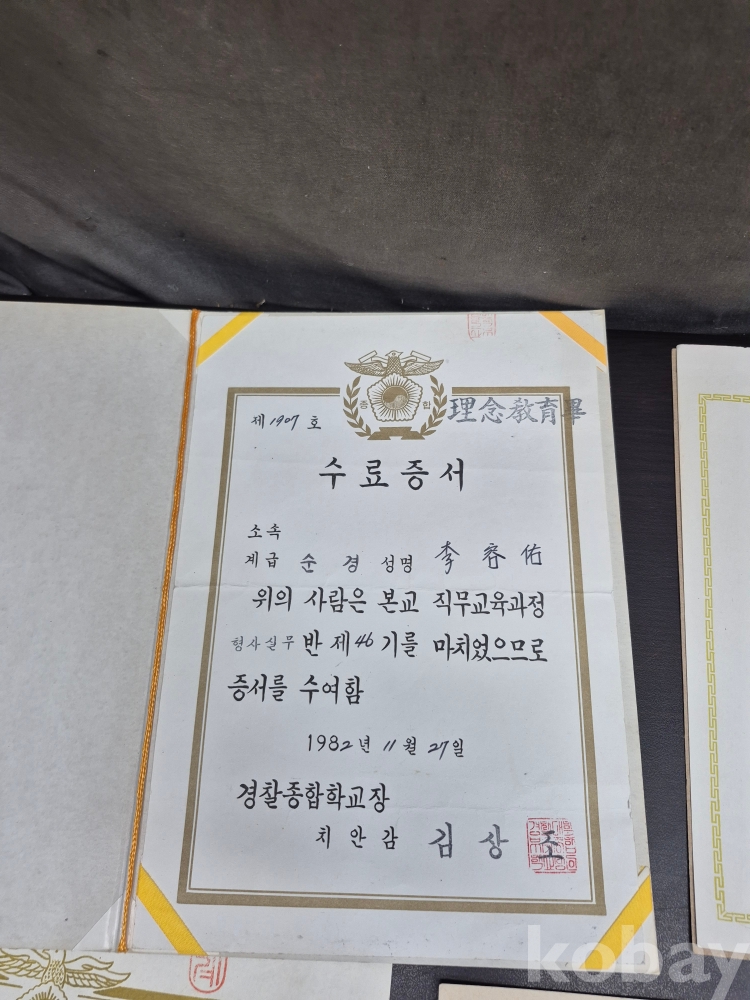 종합
理念敎育畢
제 1907 호
수료증서
소속
계급 순경 성명 李容佑
위의 사람은 본교 직무교육과정
형사실무 반 제46기를 마치었으므로
증서를 수여함
1982년 11월 27일
경찰종합학교장
치안감 김상조
kobay